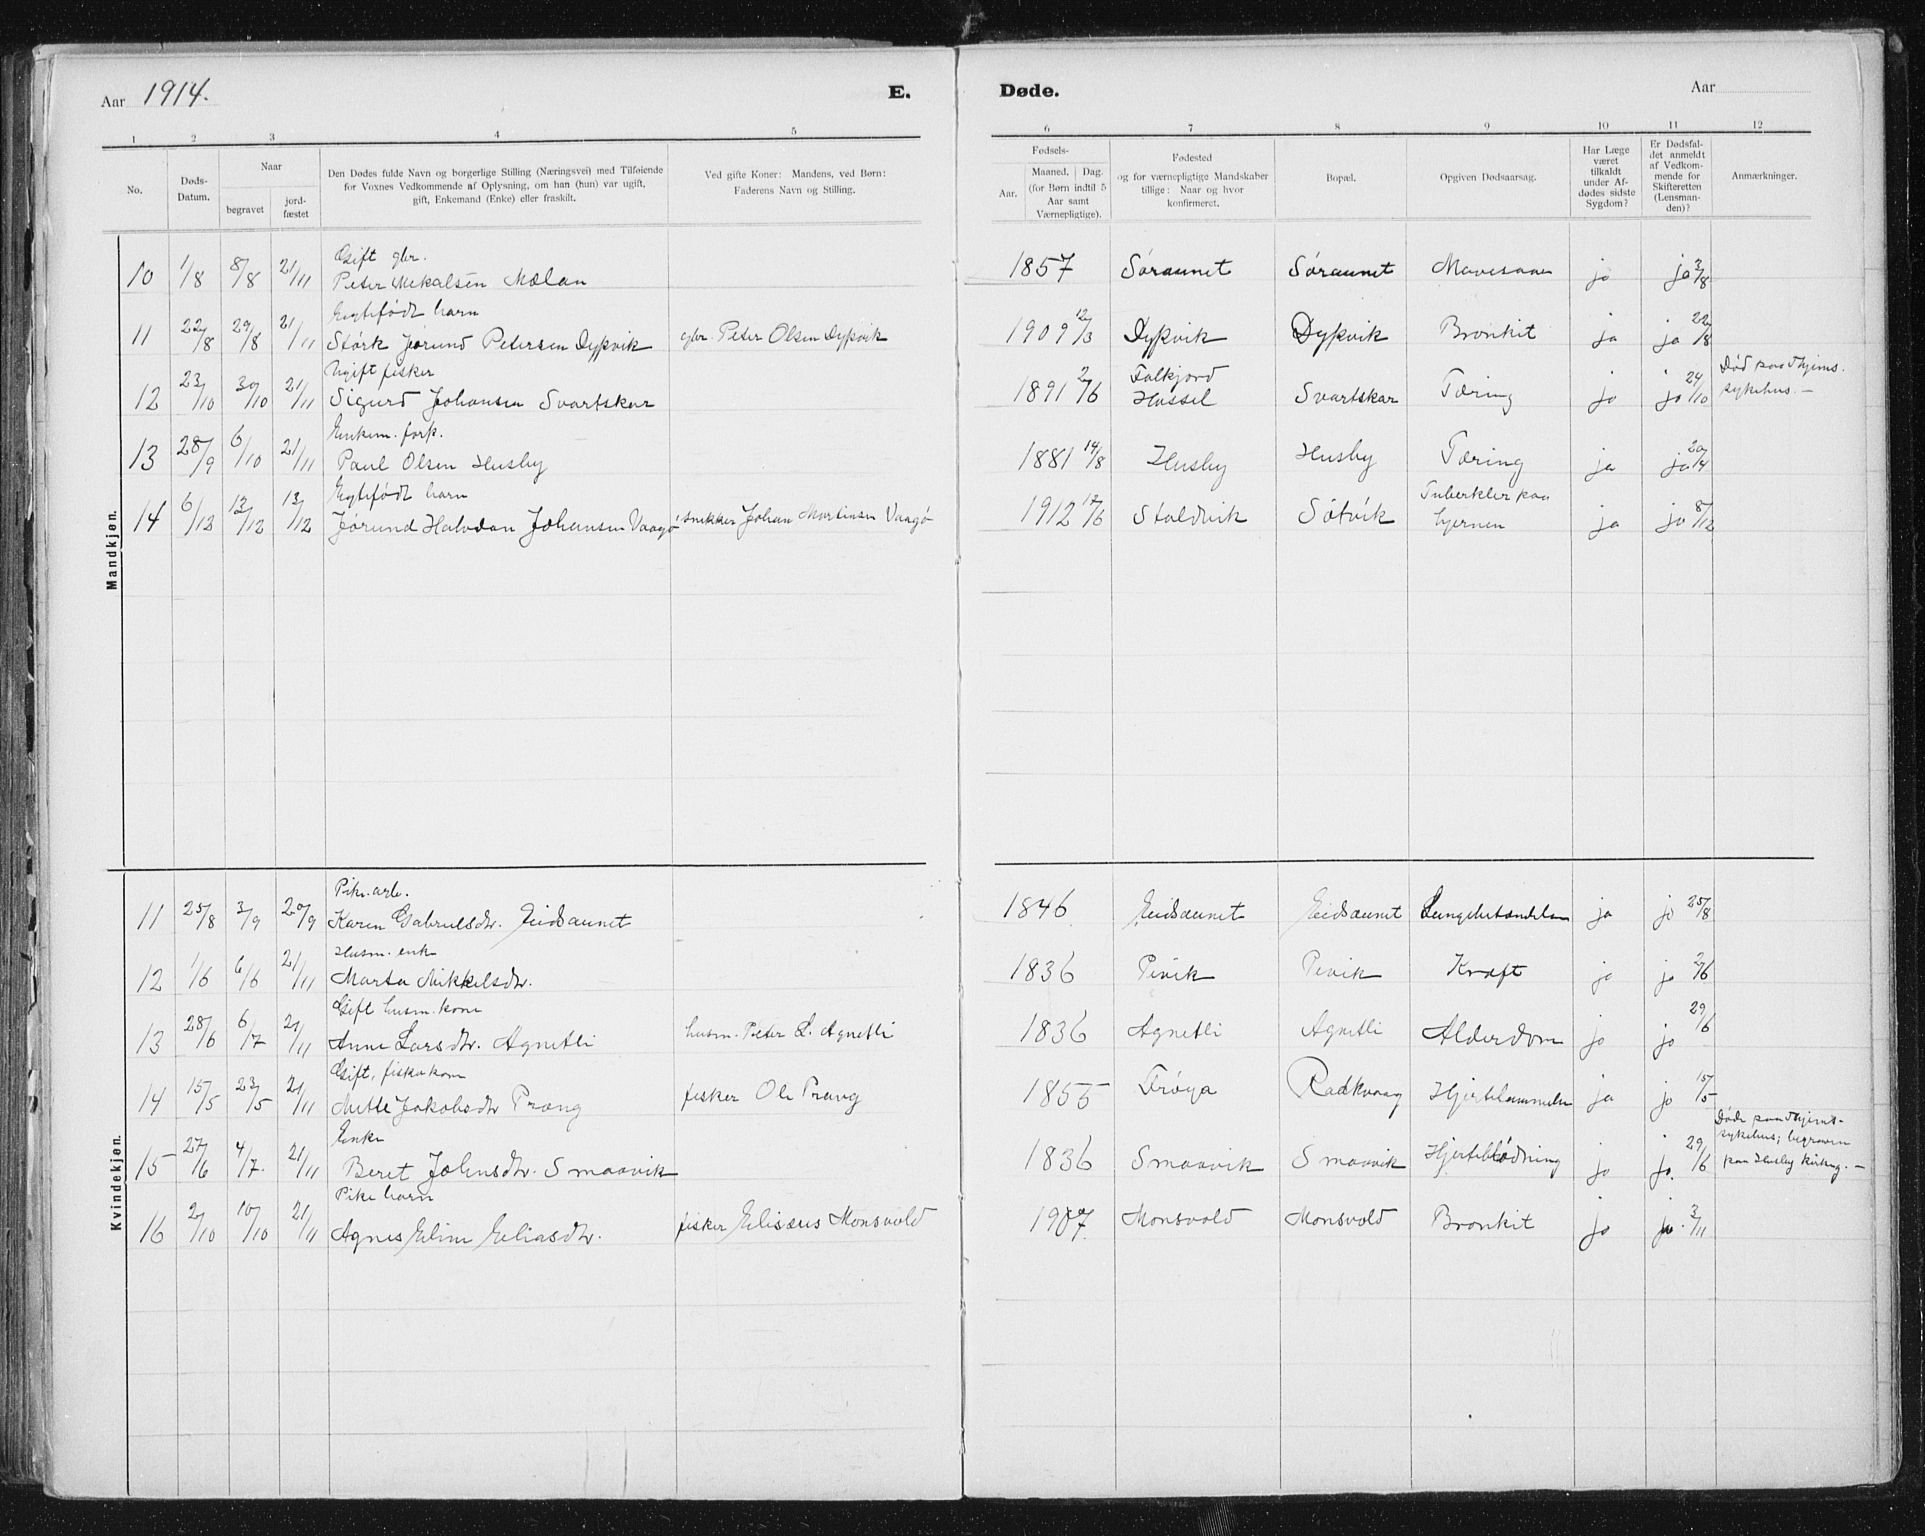 Aar 1914.
E.
Døde.
Aar
1 2 3 4 5 6 7 8 9 10 11 12
No.
Døds-
Datum.
Naar
begravet
jord-
fæstet
Den Dødes fulde Navn og borgerlige Stilling (Næringsvei) med Tilføiende
for Voxnes Vedkommende af Oplysning, om han (hun) var ugift,
gift, Enkemand (Enke) eller fraskilt.
Ved gifte Koner: Mandens, ved Børn:
Faderens Navn og Stilling.
Fødsels-
Aar.
Maaned. | Dag.
(for Børn indtil 5
Aar samt
Værnepligtige).
Fødested
og for værnepligtige Mandskaber
tillige: Naar og hvor
konfirmeret.
Bopæl.
Opgiven Dødsaarsag.
Har Læge
været
tilkaldt
under Af-
dødes sidste
Sygdom?
Er Dødsfal-
det anmeldt
af Vedkom-
mende for
Skifteretten
(Lensman-
den)?
Anmærkninger.
Mandkjøn.
Gift gbr.
10 1/8 8/8 21/11 Peter Mekalsen Mælan 1857 Søraunet Søraunet Mavesaar ja ja 3/8
Egtefødt barn
11 22/8 29/8 21/11 Størk Jørund Petersen Dypvik gbr. Peter Olsen Dypvik 1909 12/3 Dypvik Dypvik Bronkit ja ja 22/8
Ugift fisker
12 23/10 30/10 21/11 Sigurd Johansen Svartskar 1891 2/6 Falkjord Hassel Svartskar Tæring ja ja 24/10 Død paa Thjems. sykehus.-
Enkem. fork.
13 28/9 6/10 21/11 Paul Olsen Husby 1881 14/8 Husby Husby Tæring ja ja
Egtefødt barn
14 6/12 13/12 13/12 Jørund Halvdan Johansen Vaagø snekker Johan Martinsen Vaagø 1912 17/6 Staldvik Søtvik Tuberkler paa hjernen ja ja 8/12
Kvindekjøn.
Pike. arb.
11 25/8 3/9 20/9 Karen Gabrielsdtr. Eidsaunet 1846 Eidsaunet Eidsaunet ja ja 25/8
Husm. enk
12 1/6 6/6 21/11 Marta Mikkelsdtr. 1836 Pevik Pevik Kræft ja ja 2/6
Gift husm. kone
13 28/6 6/7 21/11 Anne Larsdtr. Agnetli husm. Peter L. Agnetli 1836 Agnetli Agnetli Alderdom ja ja 29/6
Gift, fisker kone
14 15/5 23/5 21/11 Mette Jakobsdtr Præng fisker Ole Præng 1855 Frøya Radkvaag Hjertelammelse ja ja 15/5
Enke
15 27/6 4/7. 21/11 Beret Johnsdtr. Smaavik 1836 Smaavik Smaavik Hjerteblødning ja ja. 29/6 Døde paa Thjems- sykehus; begraven paa Husby kirkeg.-
Pike barn
16 2/10 10/10 21/11 Agnes Eline Eliasdtr. fisker Elisæus Monsvold 1907. Monsvold Monsvold Bronkit ja ja. 3/11